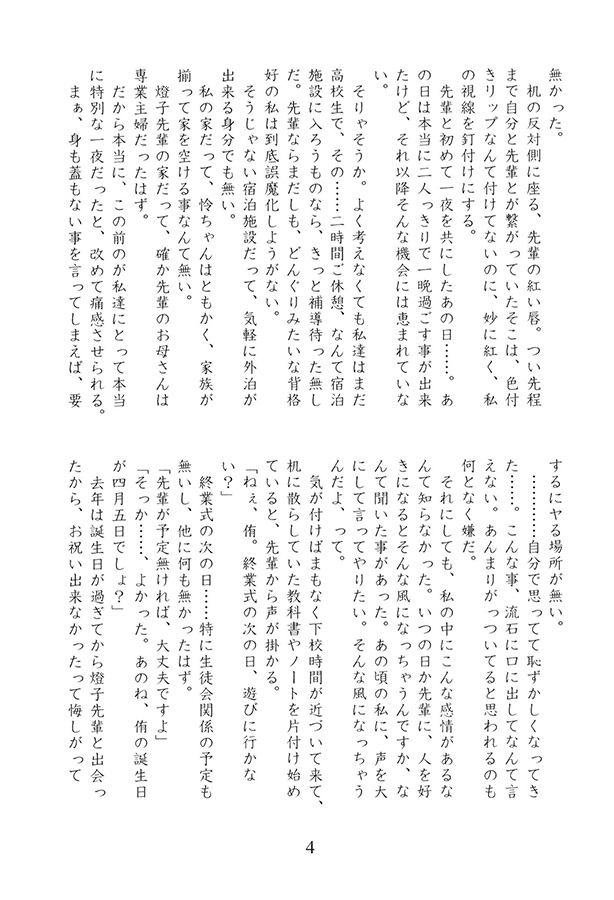 無かった。
　机の反対側に座る、先輩の紅い唇。つい先程
まで自分と先輩とが繋がっていたそこは、色付
きリップなんて付けてないのに、妙に紅く、私
の視線を釘付けにする。
　先輩と初めて一夜を共にしたあの日……。あ
の日は本当に二人っきりで一晩過ごす事が出来
たけど、それ以降そんな機会には恵まれていな
い。
　そりゃそうか。よく考えなくても私達はまだ
高校生で、その……二時間ご休憩、なんて宿泊
施設に入ろうものなら、きっと補導待った無し
だ。先輩ならまだしも、どんぐりみたいな背格
好の私は到底誤魔化しようがない。
　そうじゃない宿泊施設だって、気軽に外泊が
出来る身分でも無い。
　私の家だって、怜ちゃんはともかく、家族が
揃って家を空ける事なんて無い。
　燈子先輩の家だって、確か先輩のお母さんは
専業主婦だったはず。
　だから本当に、この前のが私達にとって本当
に特別な一夜だったと、改めて痛感させられる。
　まぁ、身も蓋もない事を言ってしまえば、要
するにヤる場所が無い。
　…………自分で思ってて恥ずかしくなってき
た……。こんな事、流石に口に出してなんて言
えない。あんまりがっついてると思われるのも
何となく嫌だ。
　それにしても、私の中にこんな感情があるな
んて知らなかった。いつの日か先輩に、人を好
きになるとそんな風になっちゃうんですか、な
んて聞いた事があった。あの頃の私に、声を大
にして言ってやりたい。そんな風になっちゃう
んだよ、って。
　気が付けばまもなく下校時間が近づいて来て、
机に散らしていた教科書やノートを片付け始め
ていると、先輩から声が掛かる。
「ねぇ、侑。終業式の次の日、遊びに行かな
い？」
　終業式の次の日……特に生徒会関係の予定も
無いし、他に何も無かったはず。
「先輩が予定無ければ、大丈夫ですよ」
「そっか……、よかった。あのね、侑の誕生日
が四月五日でしょ？」
　去年は誕生日が過ぎてから燈子先輩と出会っ
たから、お祝い出来なかったって悔しがって
4